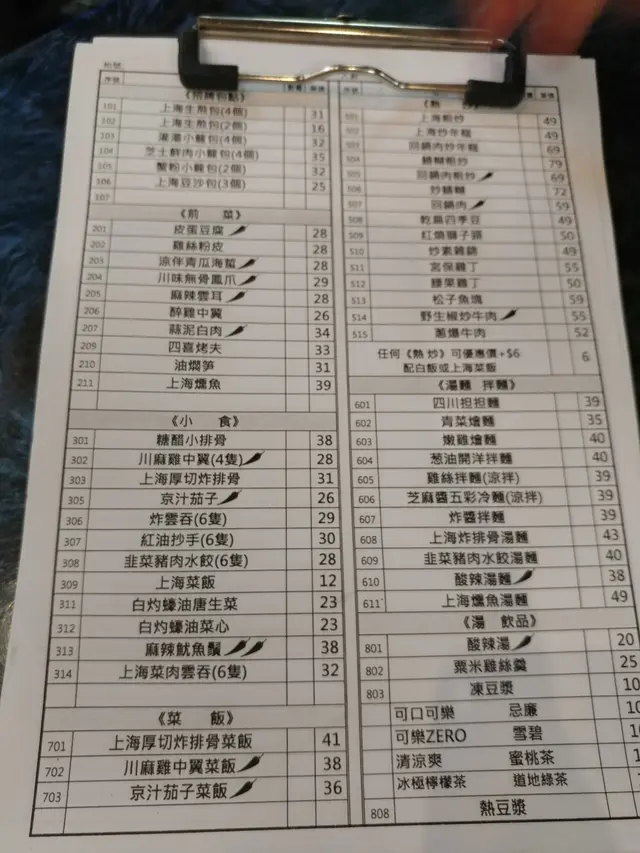 《招牌包點》
101 上海生煎包(4個) 31
102 上海生煎包(2個) 16
103 灌湯小籠包(4個) 32
104 芝士鮮肉小籠包(4個) 35
105 蟹粉小籠包(2個) 32
106 上海豆沙包(3個) 25
107
《前 菜》
201 皮蛋豆腐 28
202 雞絲粉皮 28
203 涼伴青瓜海蜇 28
204 川味無骨鳳爪 29
205 麻辣雲耳 28
206 醉雞中翼 26
207 蒜泥白肉 34
209 四喜烤夫 33
210 油燜筍 31
211 上海燻魚 39
《小 食》
301 糖醋小排骨 38
302 川麻雞中翼(4隻) 28
303 上海厚切炸排骨 31
305 京汁茄子 26
306 炸雲吞(6隻) 29
307 紅油抄手(6隻) 30
308 韭菜豬肉水餃(6隻) 28
309 上海菜飯 12
311 白灼蠔油唐生菜 23
312 白灼蠔油菜心 23
313 麻辣魷魚鬚 38
314 上海菜肉雲吞(6隻) 32
《菜 飯》
701 上海厚切炸排骨菜飯 41
702 川麻雞中翼菜飯 38
703 京汁茄子菜飯 36
《熱 炒》
501 上海粗炒 49
502 上海炒年糕 49
503 回鍋肉炒年糕 69
504 鱔糊粗炒 79
505 回鍋肉粗炒 69
506 炒鱔糊 72
507 回鍋肉 59
508 乾扁四季豆 49
509 紅燒獅子頭 50
510 炒素雜錦 49
511 宮保雞丁 55
512 腰果雞丁 50
513 松子魚塊 59
514 野生椒炒牛肉 55
515 蔥爆牛肉 52
任何《熱炒》可優惠價+$6 6
配白飯或上海菜飯
《湯麵 拌麵》
601 四川担担麵 39
602 青菜燴麵 35
603 嫩雞燴麵 40
604 葱油開洋拌麵 40
605 雞絲拌麵(涼拌) 39
606 芝麻醬五彩冷麵(涼拌) 39
607 炸醬拌麵 39
608 上海炸排骨湯麵 43
609 韭菜豬肉水餃湯麵 40
610 酸辣湯麵 38
611 上海燻魚湯麵 49
《湯 飲品》
801 酸辣湯 20
802 粟米雞絲羹 25
803 凍豆漿
可口可樂 忌廉
可樂ZERO 雪碧
清涼爽 蜜桃茶
冰極檸檬茶 道地綠茶
808 熱豆漿